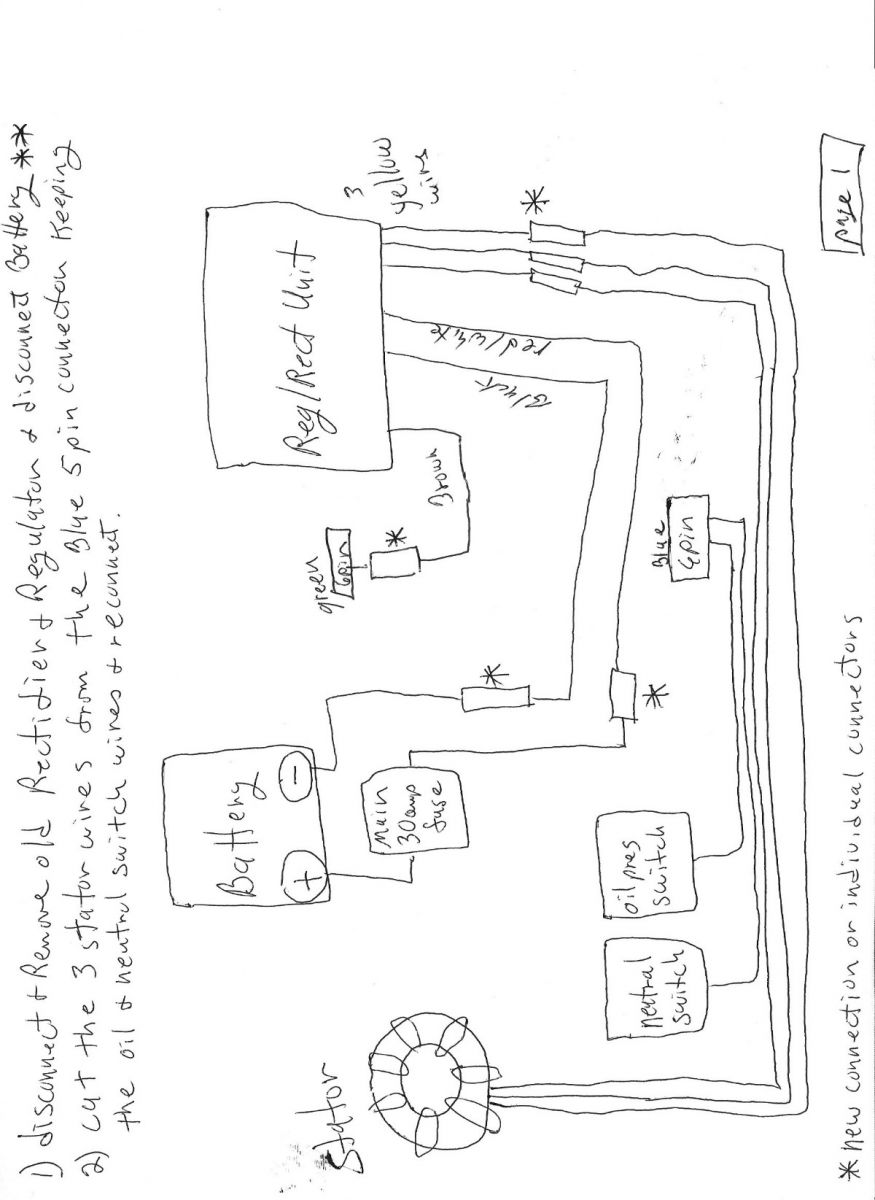 1) disconnect + Remove old Rectifier + Regulator & disconnect Battery **
2) cut the 3 stator wires from the Blue 5 pin connector Keeping
the oil & neutral switch wires & reconnect.
Reg/Rect Unit
3
yellow
wires
*
red/white
Black
Brown
green
6pin
*
Blue
6pin
Battery
+
−
*
*
Main
30 amp
fuse
oil pres
switch
neutral
switch
Stator
* new connection or individual connectors
page 1